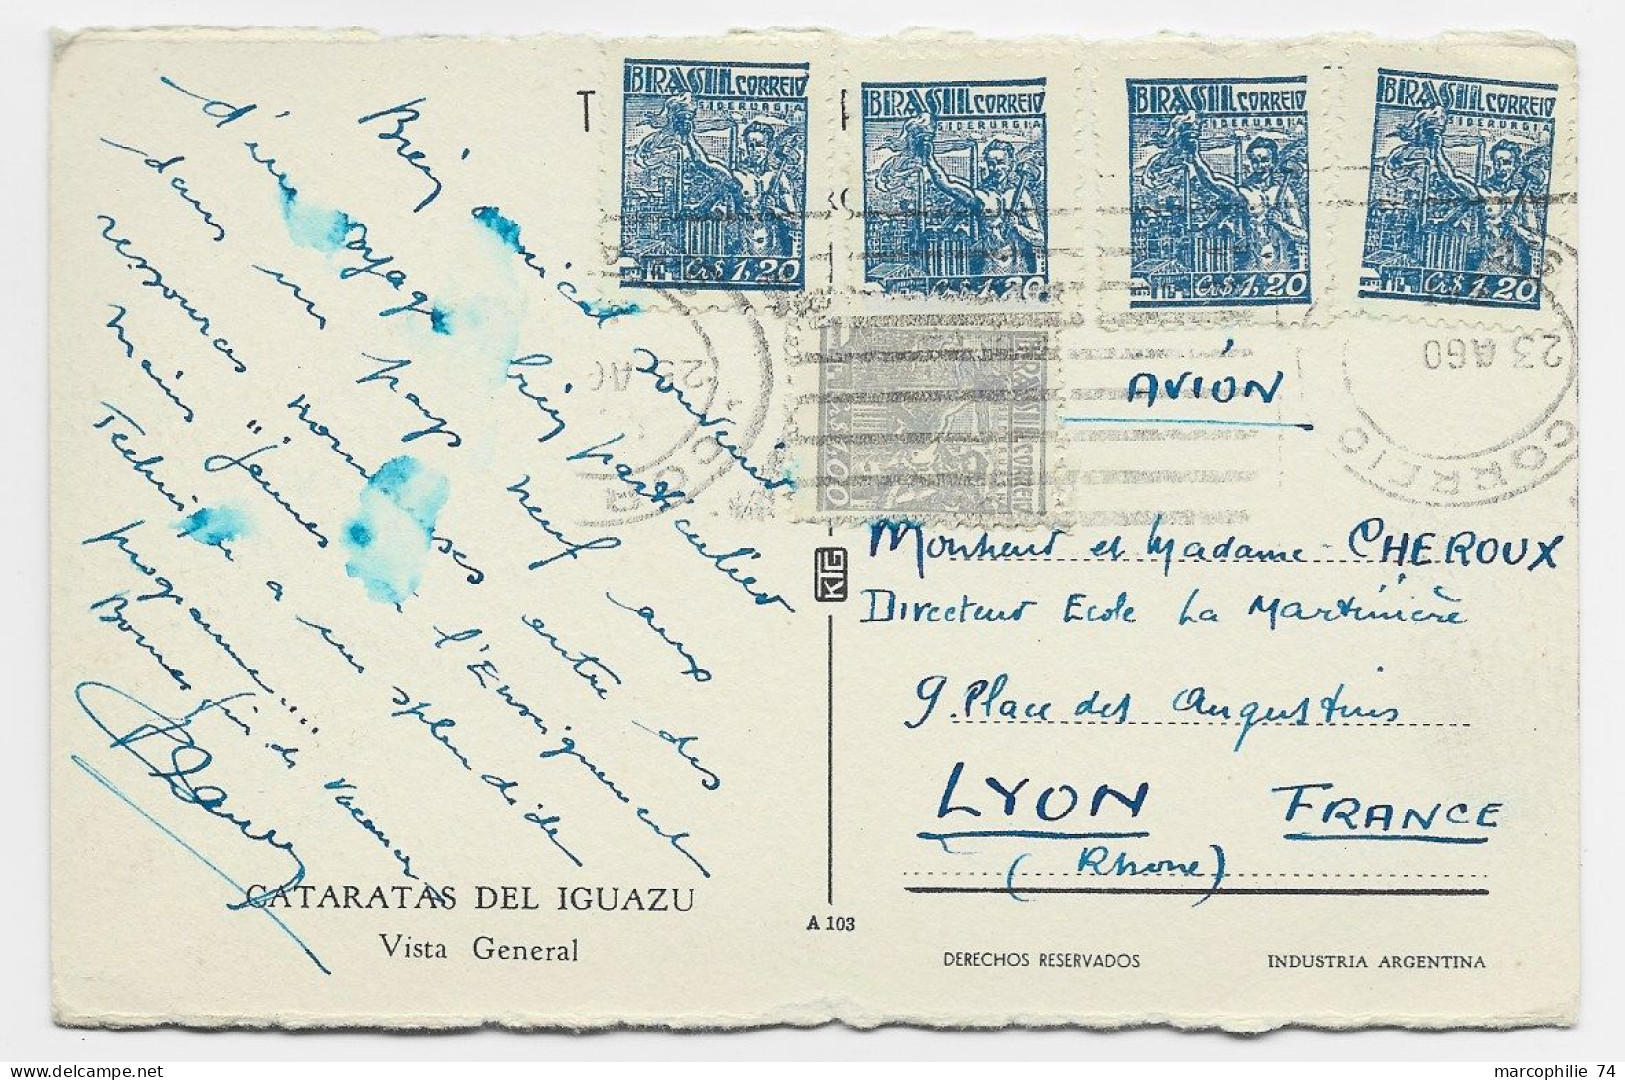 Bien amical souvenir
d'un voyage bien particulier
dans un pays neuf aux
ressources nombreuses entre des
mains "Jeunes" l'Enseignement
Technique a un splendide
programme....
Bonnes fin de vacances
CATARATAS DEL IGUAZU
Vista General
A 103
BRASIL CORREIO
SIDERURGIA
Cr$ 1,20
BRASIL CORREIO
SIDERURGIA
Cr$ 1,20
BRASIL CORREIO
SIDERURGIA
Cr$ 1,20
BRASIL CORREIO
SIDERURGIA
Cr$ 1,20
BRASIL CORREIO
23 AGO
CORREIO
AVION
KLG
Monsieur et Madame CHEROUX
Directeur Ecole La Martinière
9. Place des Augustins
LYON FRANCE
(Rhone)
DERECHOS RESERVADOS
INDUSTRIA ARGENTINA
marcophilie 74